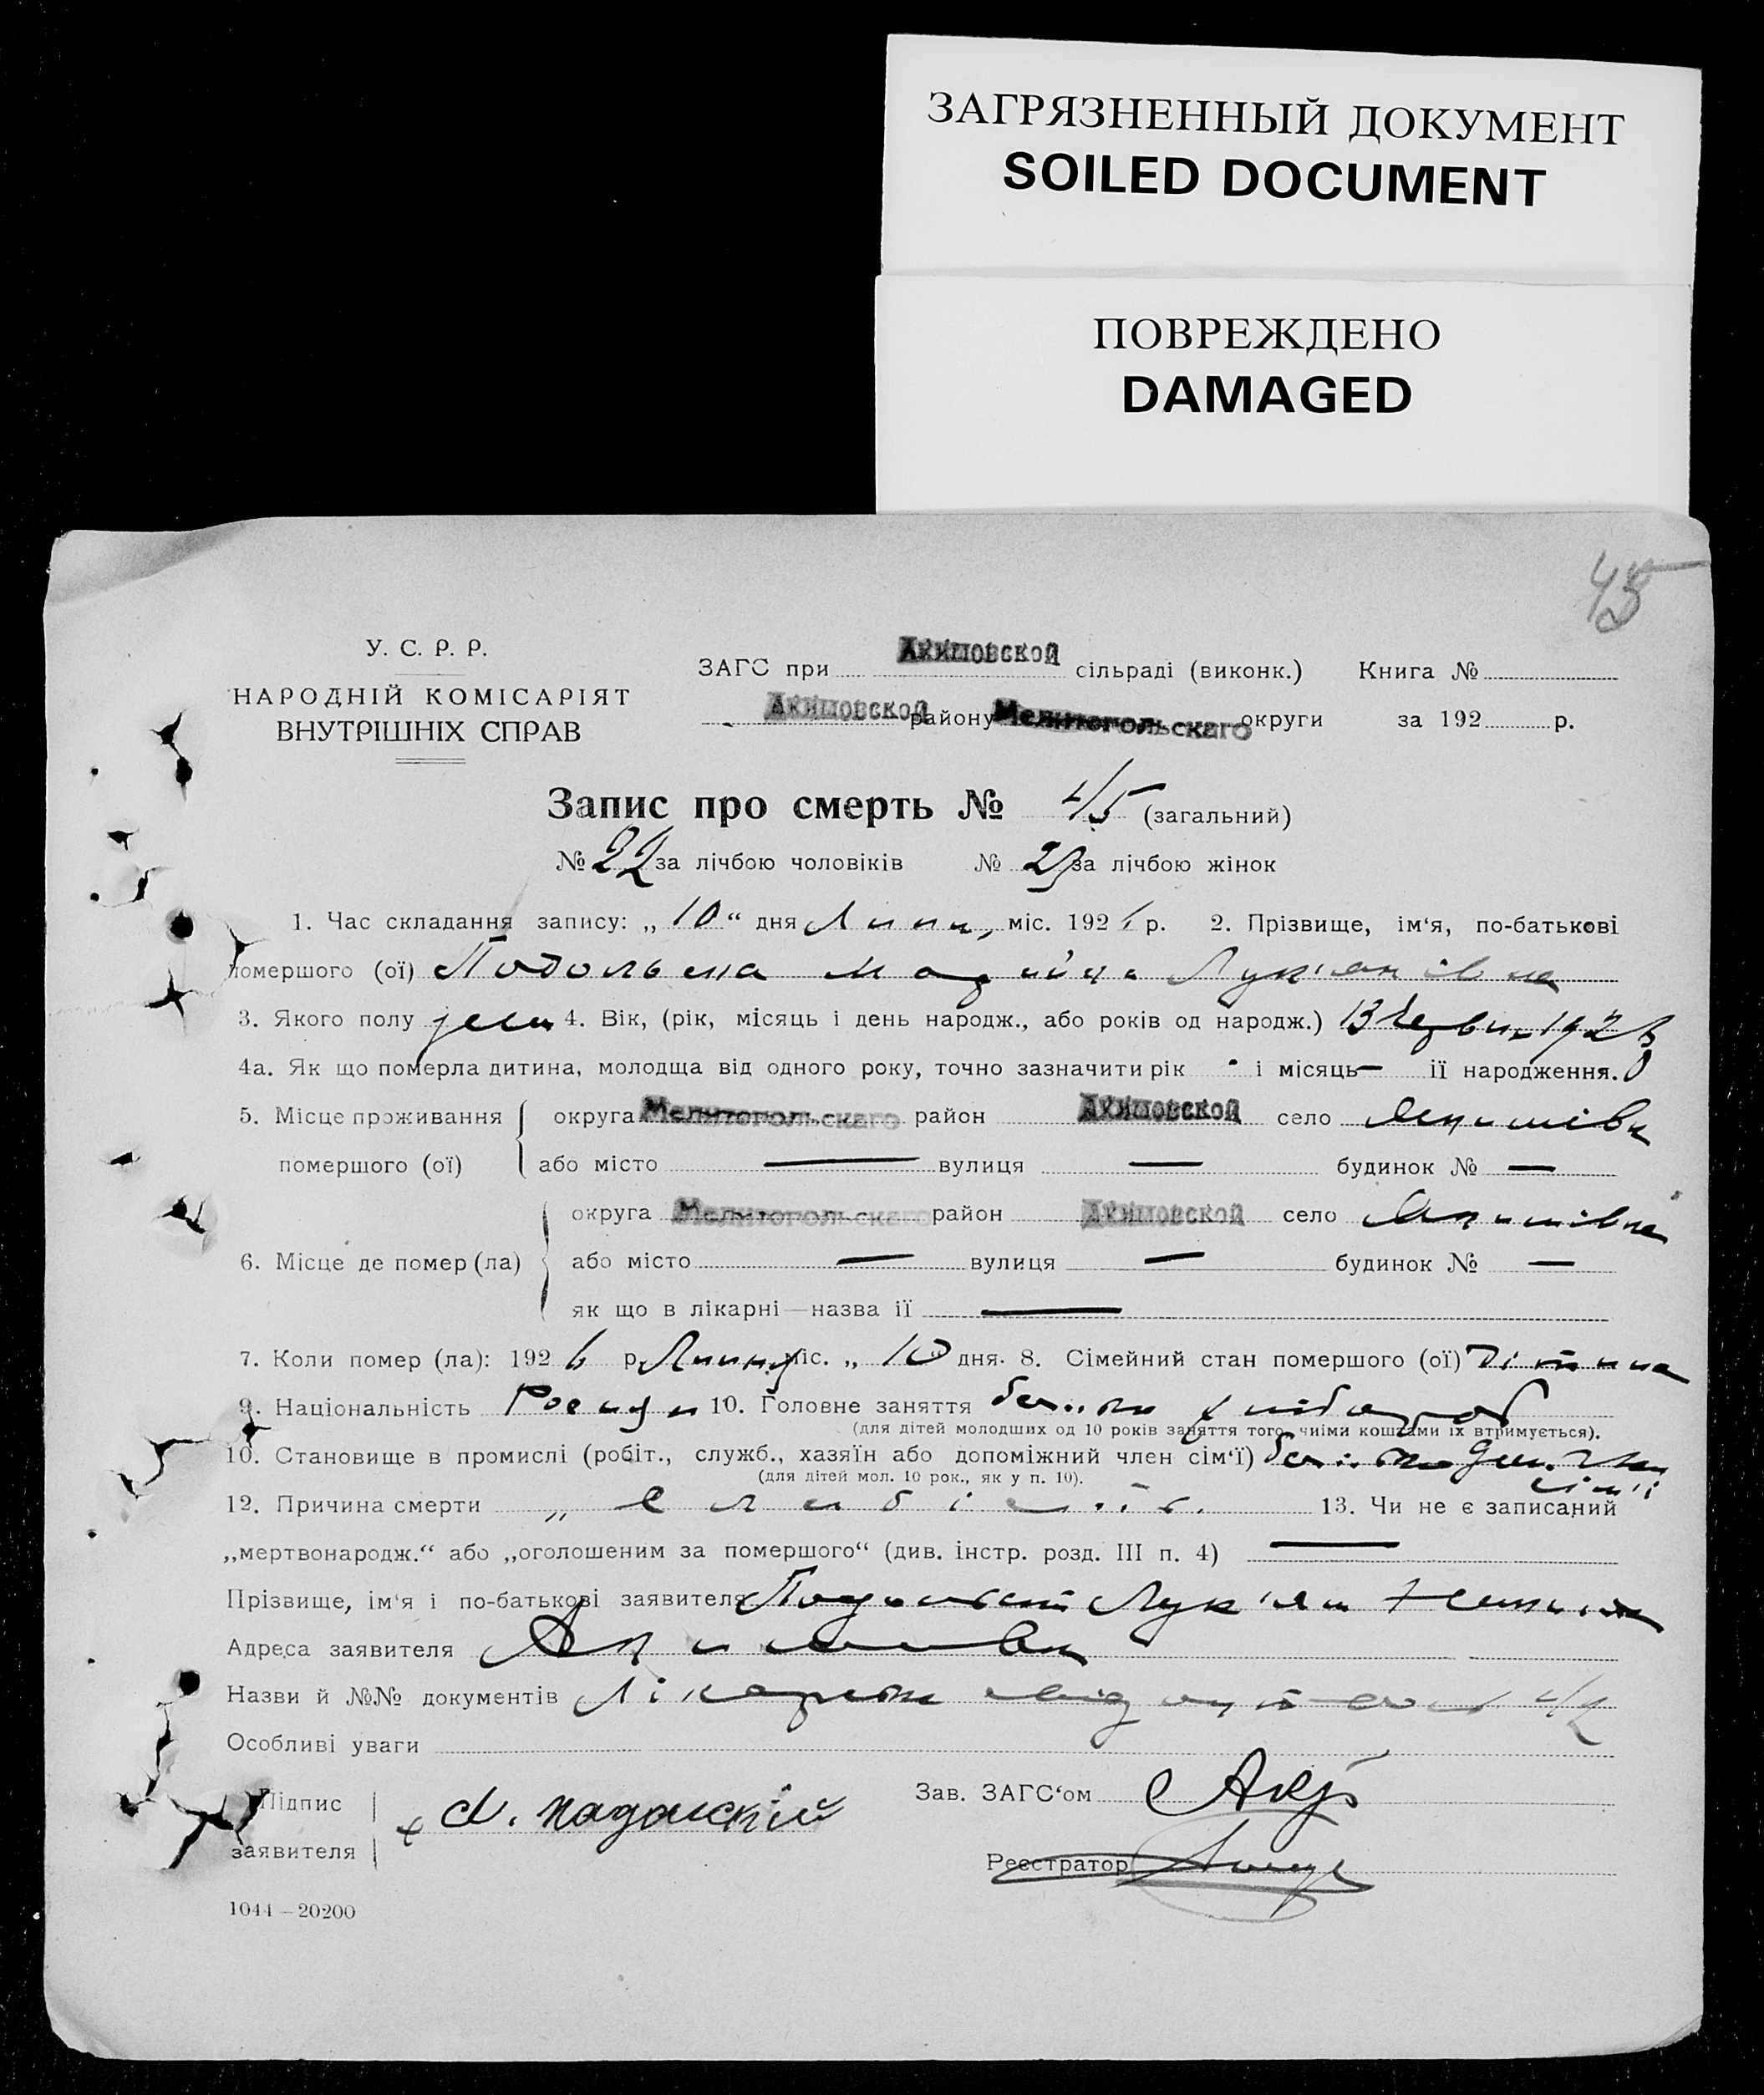 ЗАГРЯЗНЕННЫЙ ДОКУМЕНТ
SOILED DOCUMENT
ПОВРЕЖДЕНО
DAMAGED
45
У. С. Р. Р.
НАРОДНІЙ КОМІСАРІЯТ
ВНУТРІШНІХ СПРАВ
ЗАГС при Акимовской сільраді (виконк.) Книга №
Акимовской району Мелитопольскаго округи за 192 р.
Запис про смерть № 45 (загальний)
№ 22 за лічбою чоловіків № 23 за лічбою жінок
1. Час складання запису: „ 10 “ дня Липн, міс. 192 6 р. 2. Прізвище, ім'я, по-батькові
помершого (ої) Подольска Лук'янівна
3. Якого полу жен 4. Вік, (рік, місяць і день народж., або років од народж.) 13 Червн 1923
4а. Як що померла дитина, молодща від одного року, точно зазначити рік - і місяць — її народження.
5. Місце проживання округа Мелитопольскаго район Акимовской село Якимівка
помершого (ої) або місто — вулиця — будинок № —
округа Мелитопольскаго район Акимовской село Якимівка
6. Місце де помер (ла) або місто — вулиця — будинок № —
як що в лікарні—назва її —
7. Коли помер (ла): 192 6 р. Липня міс. „ 10 дня. 8. Сімейний стан помершого (ої) Дітина
9. Національність 10. Головне заняття батько
(для дітей молодших од 10 років заняття того, чиїми коштами їх втримується).
10. Становище в промислі (робіт., служб., хазяїн або допоміжний член сім'ї) батько
сім'ї
(для дітей мол. 10 рок., як у п. 10).
12. Причина смерти 13. Чи не є записаний
„мертвонародж.“ або „оголошеним за помершого“ (див. інстр. розд. III п. 4) —
Прізвище, ім'я і по-батькові заявителя Подольский Лук'ян
Адреса заявителя Акимовка
Назви й №№ документів Лікарське 42
Особливі уваги
Підпис
заявителя
Л. Падолскій
Зав. ЗАГС'ом
Реєстратор
1044—20200